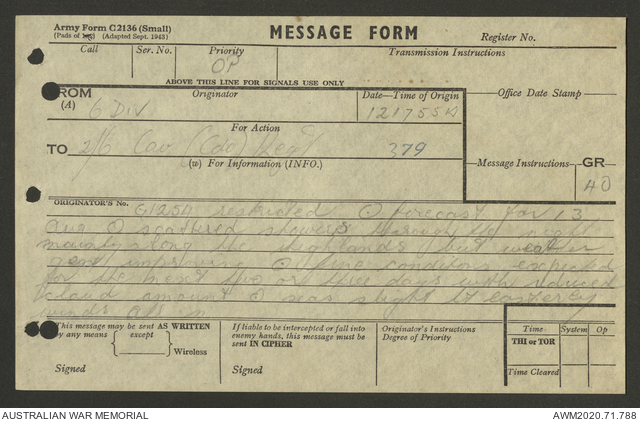 Army Form C2136 (Small)
(Pads of 100) (Adapted Sept. 1943)
MESSAGE FORM
Register No.
Call Ser. No. Priority Transmission Instructions
OP
ABOVE THIS LINE FOR SIGNALS USE ONLY
FROM Originator Date—Time of Origin Office Date Stamp
(A) 6 DIV 121755K
For Action
TO 2/6 Cav (Cdo) Regt 379
(W) For Information (INFO.) Message Instructions GR
40
ORIGINATOR'S No. G1254 restricted O forecast for 13
Aug O scattered showers through the night
mainly along the highlands but weather
gens improving O fine conditions expected
for the next two or three days with reduced
cloud amount O seas slight O easterly
winds
This message may be sent AS WRITTEN
by any means except Wireless
Signed
If liable to be intercepted or fall into
enemy hands, this message must be
sent IN CIPHER
Signed
Originator's Instructions
Degree of Priority
Time System Op
THI or TOR
Time Cleared
AUSTRALIAN WAR MEMORIAL AWM2020.71.788